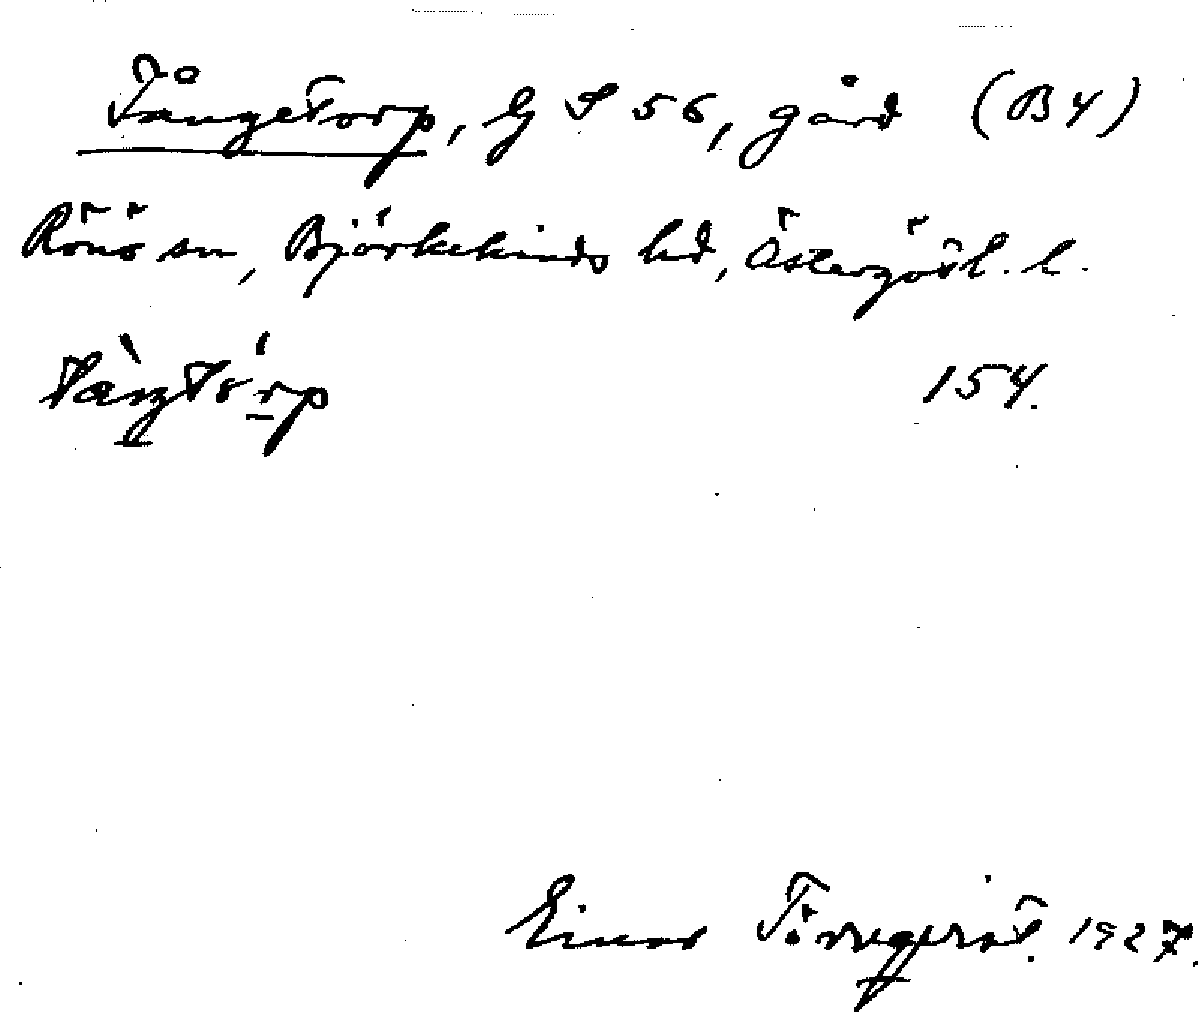 Tångetorp, G S 56, gård (B4)
Rönö sn, Björkekinds hd, Östergötl. l.
154.
Einar Törnqvist. 1927.